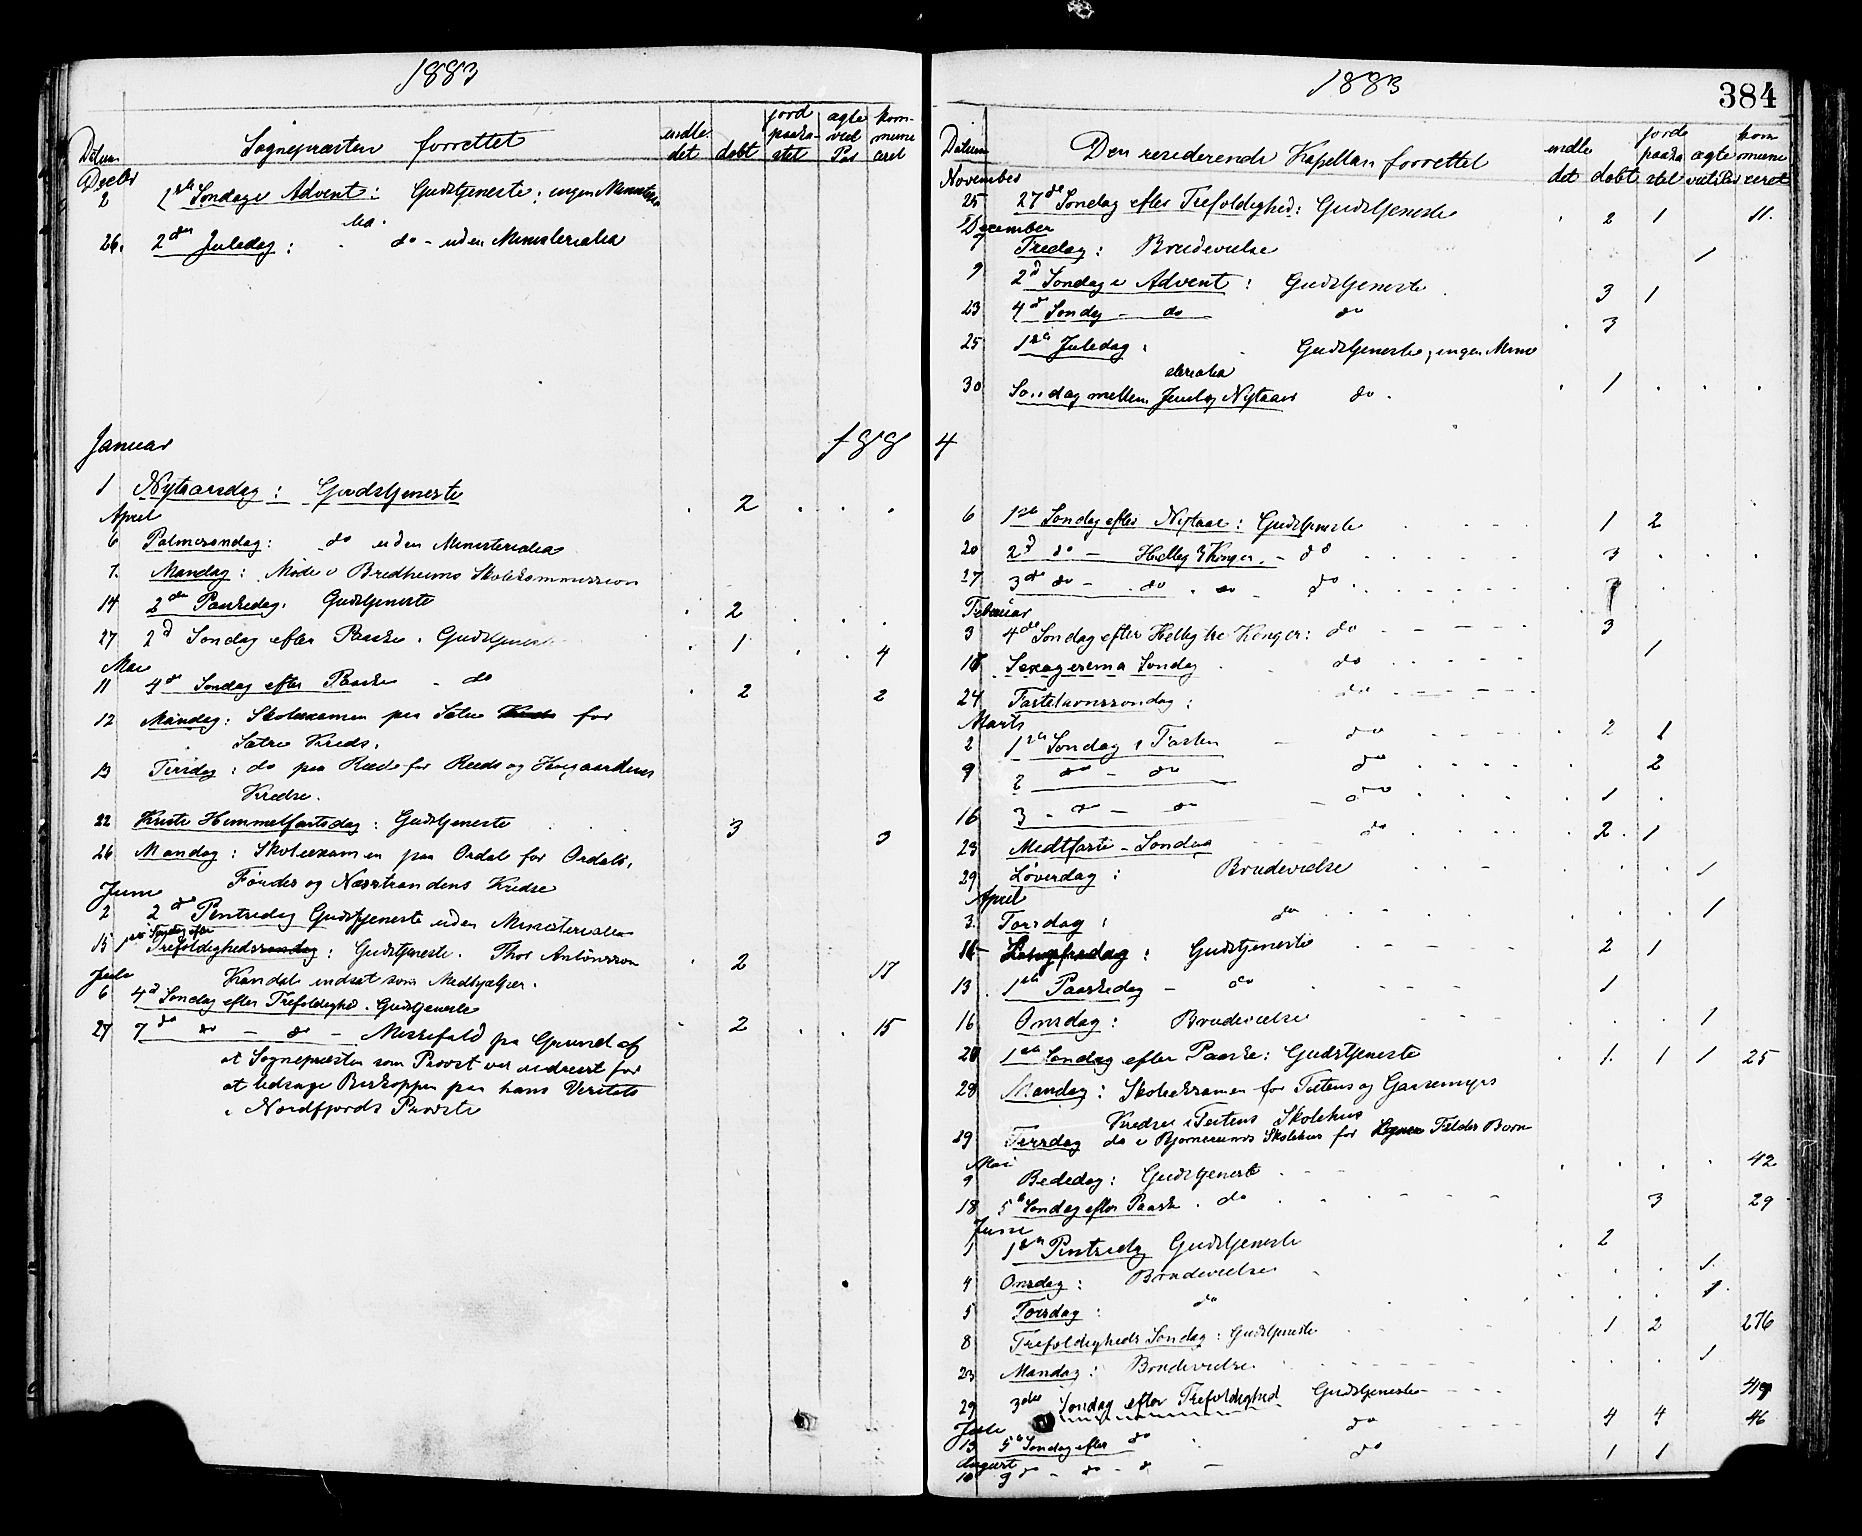 1883
Datum Sognepræsten forrettet indledet døbt jordpaakastet ægteviet Par kommuniceret
Decbr
2 1ste Søndag i Advent: Gudstjeneste: ingen Ministerialia
26. 2den Juledag: do - uden Ministerialia
Januar 188
1 Nytaarsdag: Gudstjeneste 2
April
6 Palmesøndag: do uden Ministerialia
7. Mandag: Møde i Bredheims Skolekommission
14 2den Paaskedag. Gudstjeneste 2
27 2d Søndag efter Paaske. Gudstjeneste 1 4
Mai
11 4de Søndag efter Paaske - do 2 2
12 Mandag: Skoleexamen paa Sætre for
Sætre Kreds.
13 Tirsdag: do paa Reed for Reeds og
Kredse.
22 Kristi Himmelfartsdag: Gudstjeneste 3 3
26 Mandag: Skoleexamen paa Ordal for Ordals,
Førdes og Næsstrandens Kredse
Juni
2 2de Pintsedag Gudstjeneste uden Ministerialia
15 1ste Søndag efter Trefoldighedssøndag: Gudstjeneste. Thor Antonsson 2 17
Kandal indsat som Medhjælper.
Juli
6 4d Søndag efter Trefoldighed. Gudstjeneste
27 7de do - do - Messefald paa Grund af 2 15
at Sognepræsten som Provst var reist for
at ledsage Biskoppen paa hans Visitats
i Nordfjords Provsti
1883
384
Datum Den residerende Kapellan forrettet indledet døbt jordpaakastet ægteviet Par kommuniceret
November
25 27de Søndag efter Trefoldighed: Gudstjeneste 2 1 11.
December
7 Fredag: Brudevielse 1
9 2d Søndag i Advent: Gudstjeneste 3 1
23 4de Søndag - do do 3
25 1ste Juledag: Gudstjeneste, ingen Ministerialia
30 Søndag mellem Jul og Nytaar do. 1
4
6 1ste Søndag efter Nytaar: Gudstjeneste 1 2
20 2d do - Hellig 3 Konger. - do 3
27 3de do - do - do
Februar
3 4de Søndag efter Hellig tre Konger: do 3
Sexagesima Søndag do 1
24 Fastelavnssøndag: do
Marts
2 1ste Søndag i Fasten - do 2 1
9 2 do - do do 2
16 3. do - do - do 1
23 Midtfaste-Søndag do 2. 1
29 Løverdag: Brudevielse 1
April
3. Torsdag: do 1
Langfredag: Gudstjeneste 2 1
13 1ste Paaskedag - do 1
16 Onsdag: Brudevielse 1
20 1ste Søndag efter Paaske: Gudstjeneste 1. 1 1 25
28 Mandag: Skoleexamen for Totens og Gaasemyrs
Kredse i Totens Skolehus
29 Tirsdag do i Bjørnereims Skolehus for Børn
Mai
9 Bededag: Gudstjeneste 42
18 5te Søndag efter Paaske. do 3 29
Juni
1 1ste Pintsedag Gudstjeneste 2
4 Onsdag: Brudevielse 1
5 Torsdag: do 1
8 Trefoldigheds Søndag: Gudstjeneste 1 2 276
23 Mandag: Brudevielse 1
29 3die Søndag efter Trefoldighed Gudstjeneste 49
Juli
13 5te Søndag efter do do 4 4 46
August
10 9 do - do - do - do 1 1